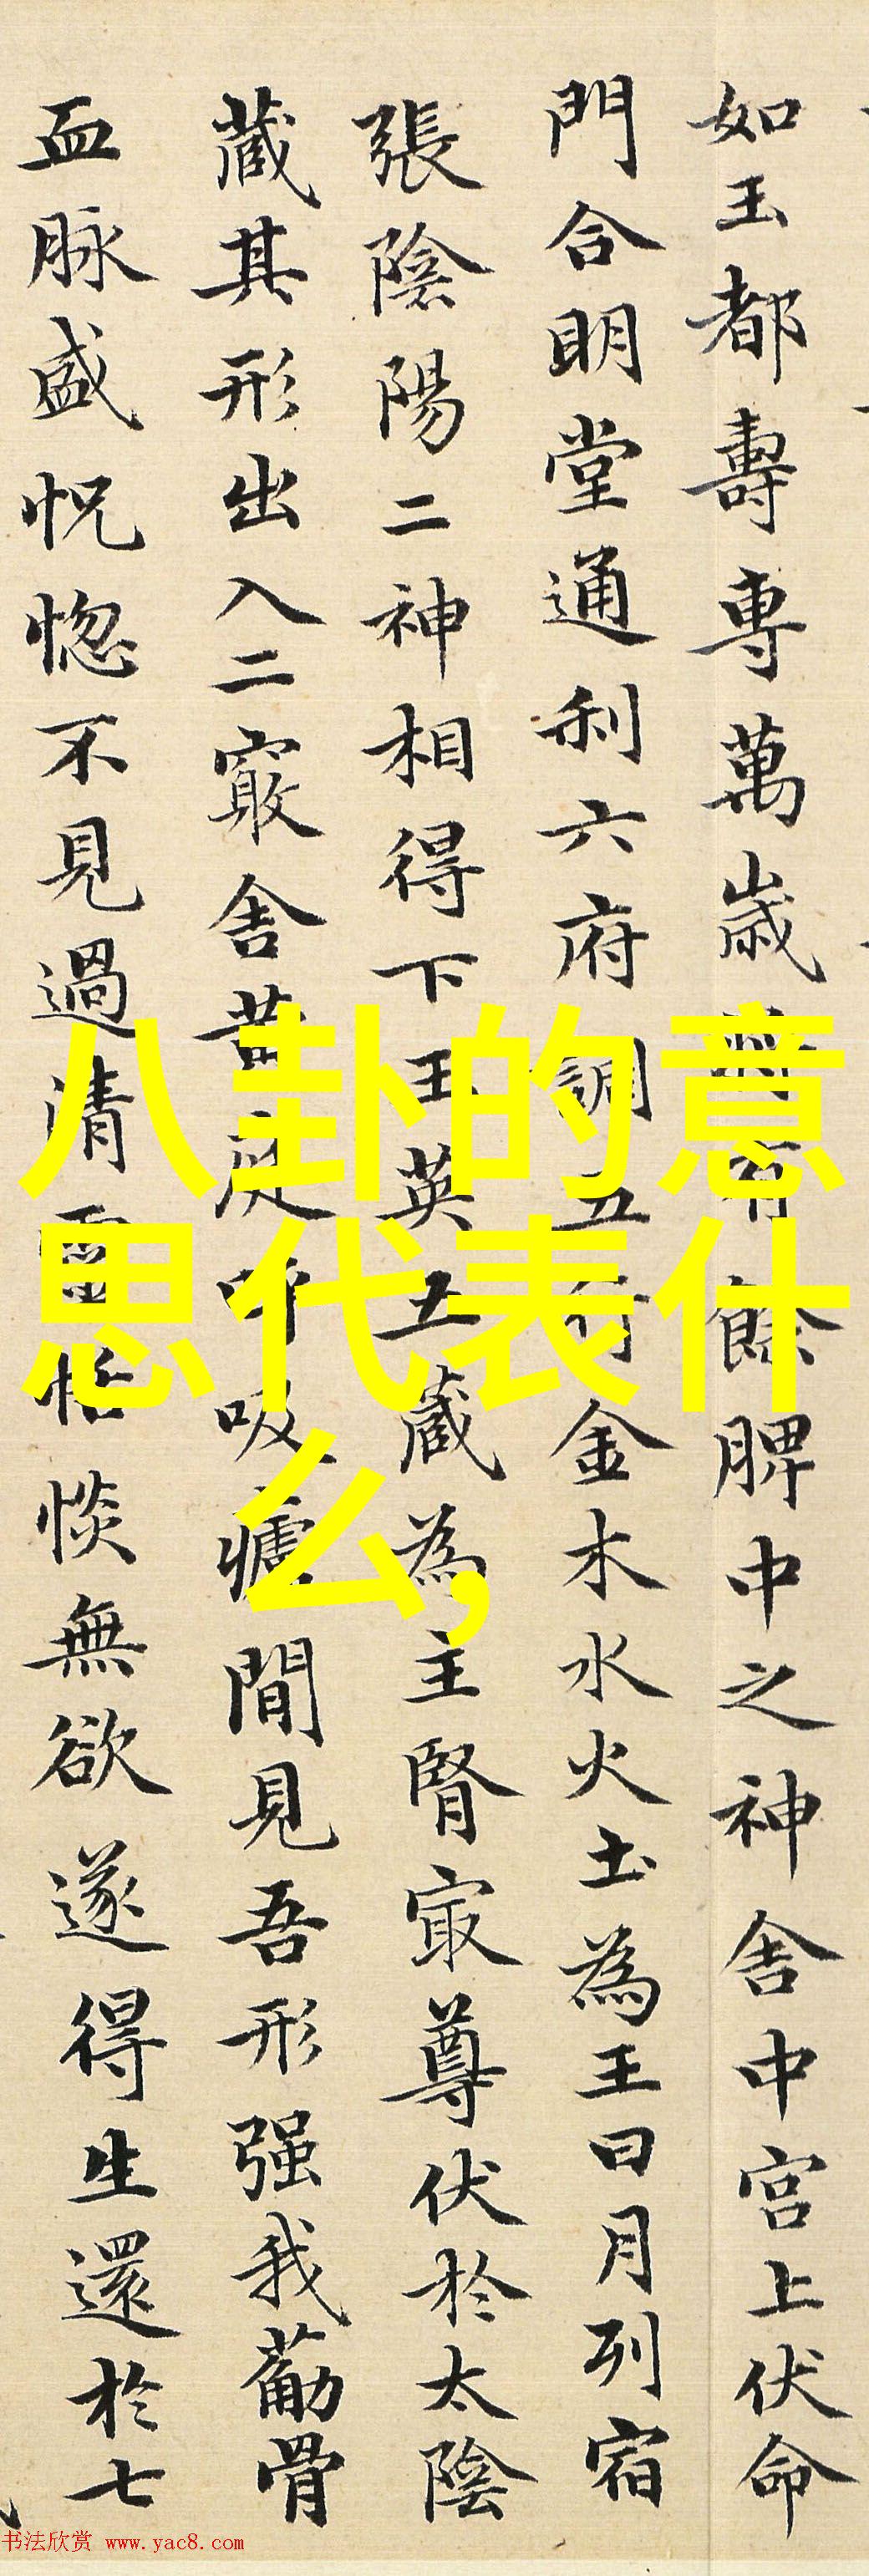 如玉都壽專萬歲將有餘脾中之神舍中宮上伏命
門合明堂通利六府調五行金木水火土為王日月列宿
張陰陽二神相得下玉英五藏為主腎寂尊伏於太陰
藏其形出入二竅舍黃庭呼吸虛間見吾形强我筋骨
血脉盛怳惚不見過清靈恬惔無欲遂得生還於七
八卦的意
思代表什
么,
书法欣赏 www.yac8.com